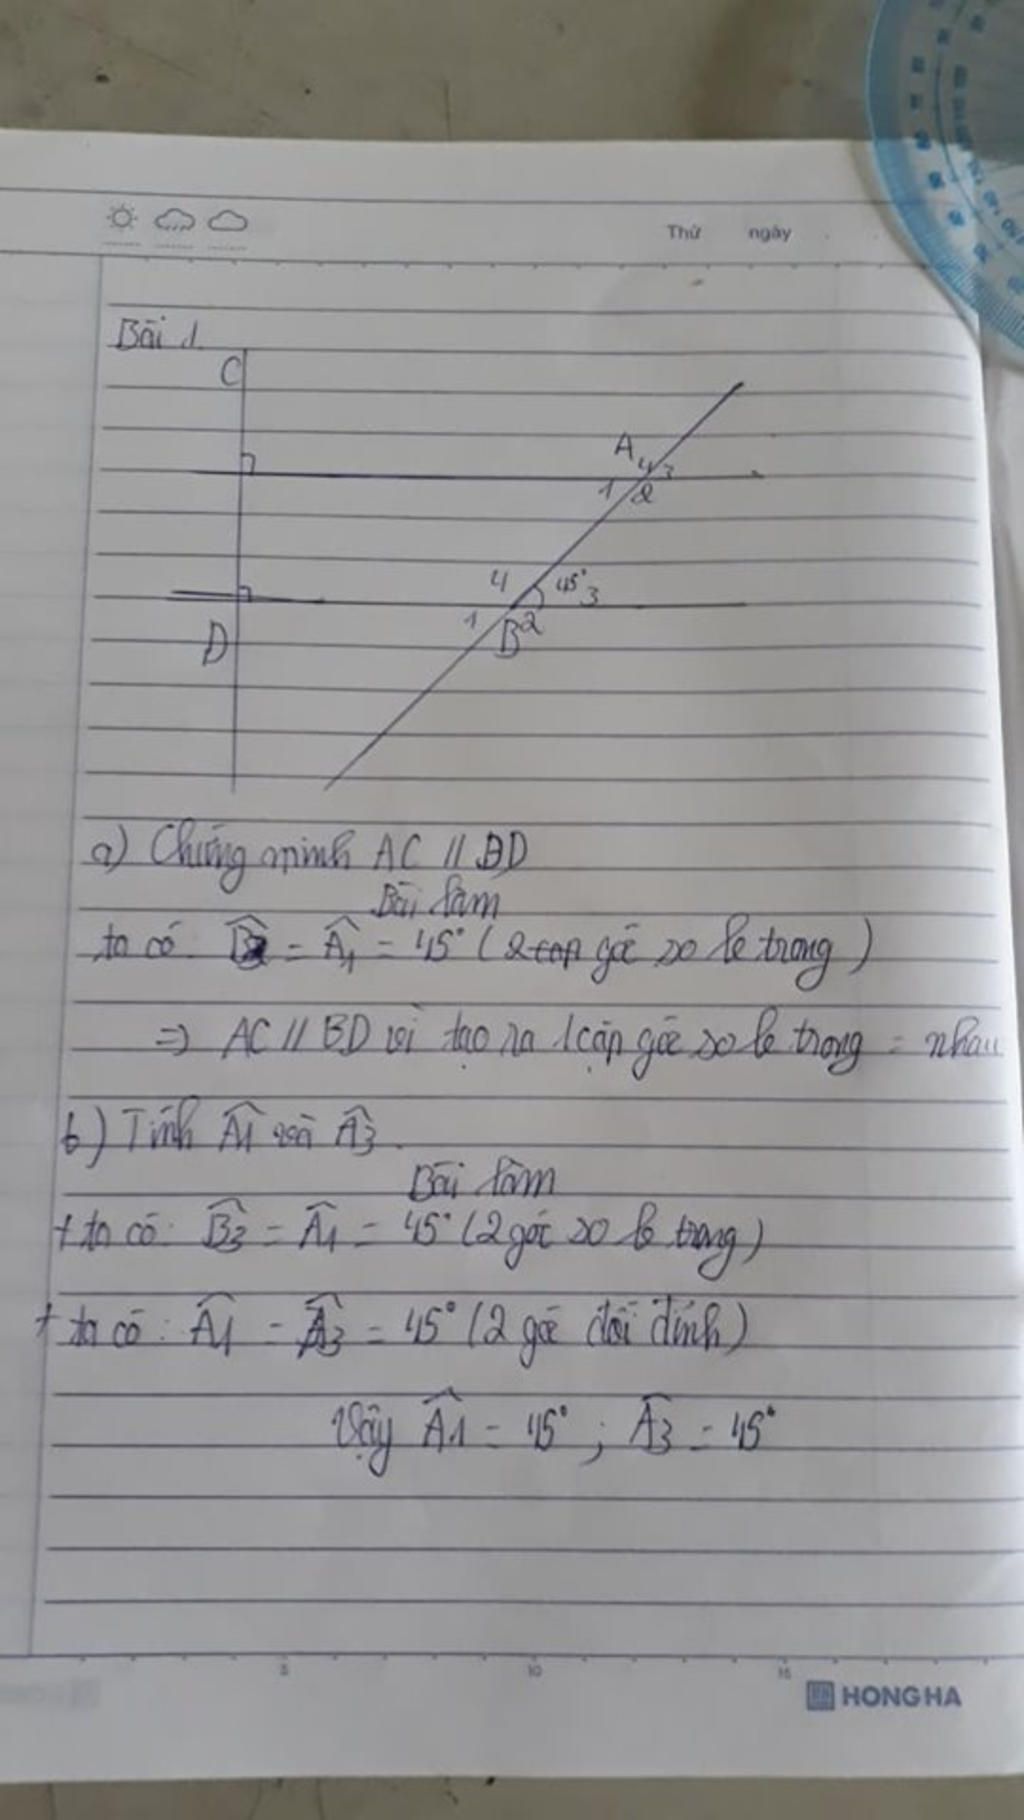 Thứ ngày
Bài 1.
C
A
4 3
1 2
4 45° 3
1 B 2
D
a) Chứng minh AC // BD
Bài làm
ta có: = Â1 = 45° (2 góc so le trong)
=> AC // BD vì tạo ra 1 cặp góc so le trong = nhau
b) Tính Â1 và Â3.
Bài làm
+ ta có: B̂3 = Â1 = 45° (2 góc so le trong)
+ ta có: Â1 = Â3 = 45° (2 góc đối đỉnh)
Vậy Â1 = 45° ; Â3 = 45°
5 10 15
HONG HA